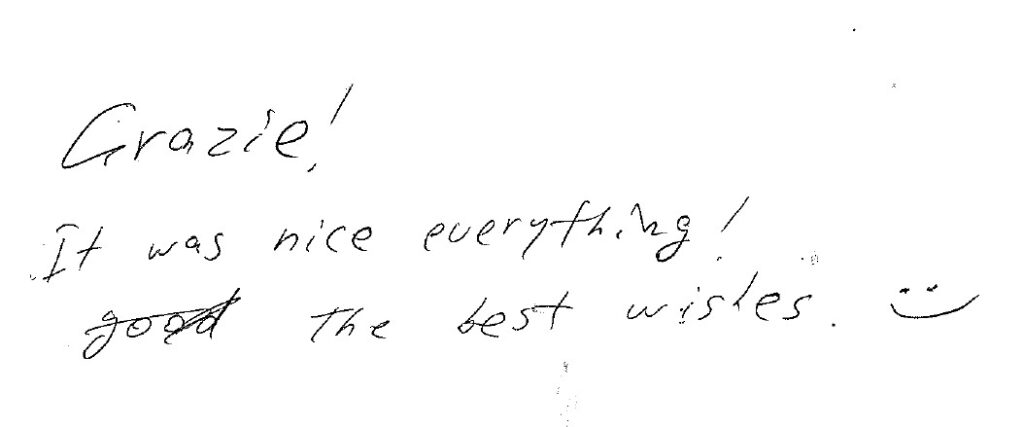 Grazie!
It was nice everything!
good The best wishes. :)